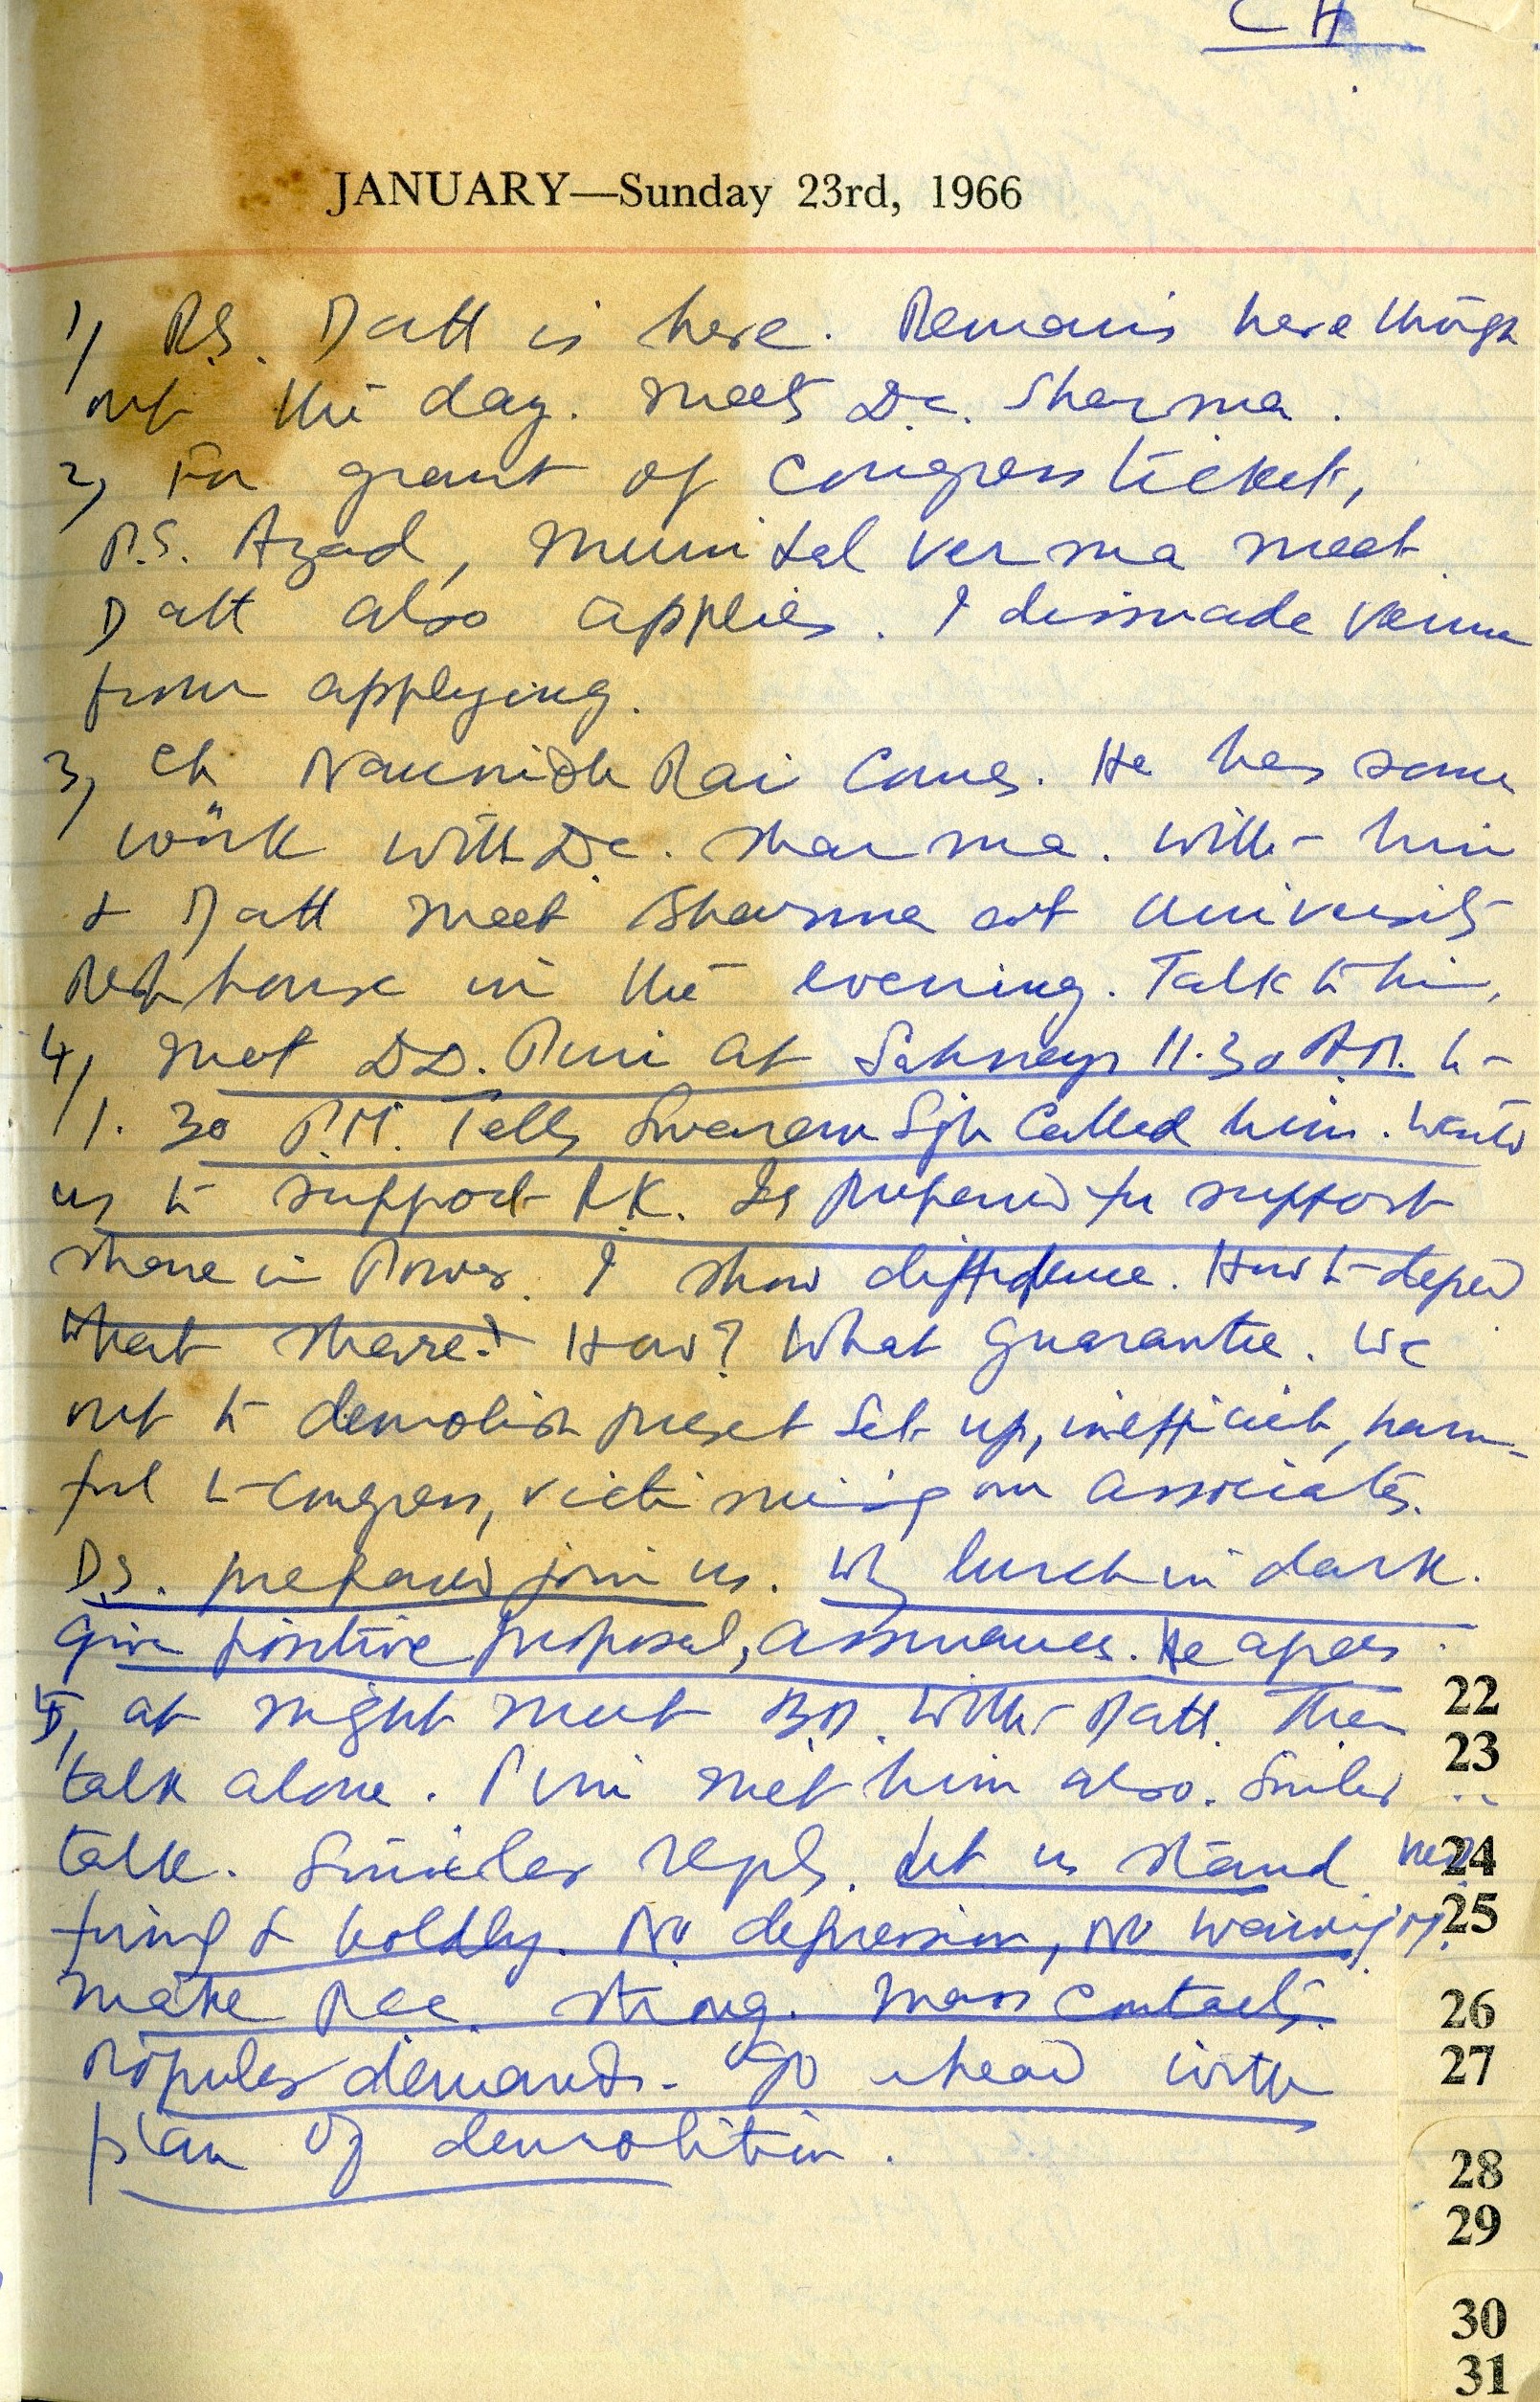 CH
JANUARY—Sunday 23rd, 1966
1) R.S. Datt is here. Remains here through
out the day. meets D.C. Sharma.
2) For grant of Congress ticket,
P.S. Azad, Muni Lal Verma meet
Datt also applies. I dissuade Verma
from applying.
3) Ch Naunidh Rai comes. He has some
work with D.C. Sharma. With him
& Datt meet Sharma at University
Rest house in the evening. Talk to him.
4) met D.D. Puri at Sahneys 11.30 A.M. to
1.30 P.M. Tells Swaran Singh called him. Wants
us to support R.K. Is prepared for support
share in Power. I show diffidence. How to depend
What share? How? What guarantee. We
out to demolish present set up, inefficient, harm-
ful to Congress, victimising our associates.
D.S. prepared join us. Why lurch in dark.
Give positive proposal, assurances. He agrees.
5) at night meet B.D. with Datt. Then
talk alone. Puri met him also. Similar
talk. Similar reply. Let us stand
firmly & boldly. No depression, No wavering.
make strong. Mass contacts.
Popular demands. Go ahead with
plan of demolition.
22
23
24
25
26
27
28
29
30
31